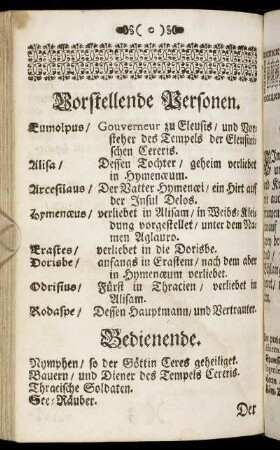 ( o )
Vorstellende Personen.
Eumolpus / Gouverneur zu Eleusis / und Vor-
steher des Tempels der Eleusini-
schen Cereris.
Alisa / Dessen Tochter / geheim verliebt
in Hymenæum.
Arcesilaus / Der Vatter Hymenæi / ein Hirt auf
der Insul Delos.
Hymenæus / verliebt in Alisam / in Weibs-Klei-
dung vorgestellet / unter dem Na-
men Aglauro.
Erastes / verliebt in die Dorisbe.
Dorisbe / anfangs in Erastem / nach dem aber
in Hymenæum verliebet.
Odrisius / Fürst in Thracien / verliebet in
Alisam.
Rodaspe / Dessen Hauptmann / und Vertrauter.
Bedienende.
Nymphen / so der Göttin Ceres geheiliget.
Bauern / und Diener des Tempels Cereris.
Thracische Soldaten.
See-Räuber.
Der